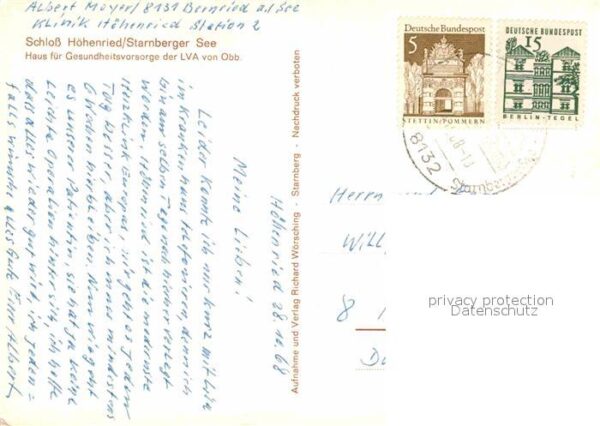 Albert Meyer/8131 Bernried a. See
Klinik Höhenried Station 2
Schloß Höhenried/Starnberger See
Haus für Gesundheitsvorsorge der LVA von Obb.
Höhenried 28.10.68
Meine Lieben!
Leider konnte ich nur kurz mit Euch
im Krankenhaus telefonieren, denn ich
bin am selben Tage nach hier verlegt
worden. Höhenried ist die modernste
Herzklinik Europas, mir geht es jeden
Tag besser, aber ich muss mindestens
6 Wochen hier bleiben. Nun wie geht
es unserer Patientin, sie hat ja keine
leichte Operation hinter sich, ich hoffe
dass alles wieder gut wird, ich jeden=
falls wünsche alles Gute Euer Albert
Aufnahme und Verlag Richard Wörsching - Starnberg - Nachdruck verboten
5
Deutsche Bundespost
STETTIN/POMMERN
DEUTSCHE BUNDESPOST
15
BERLIN-TEGEL
8132
Herrn
Will
8
privacy protection
Datenschutz